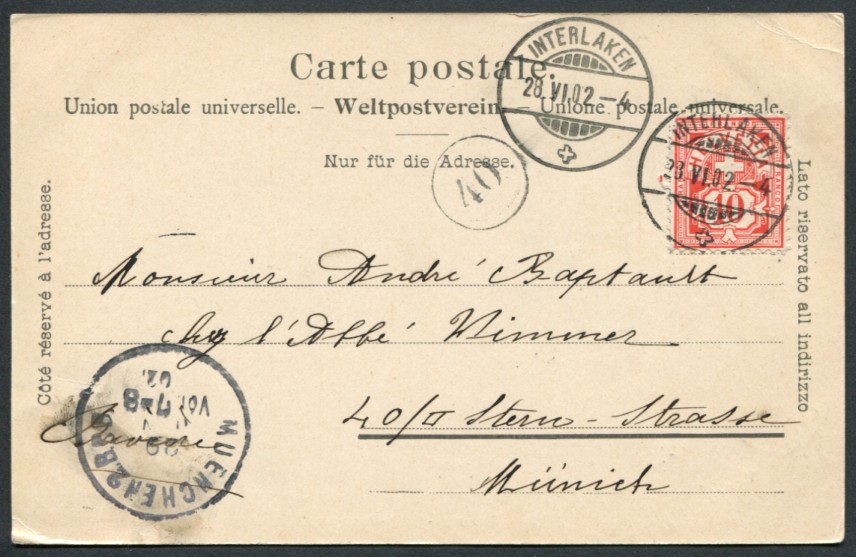 Carte postale.
Union postale universelle. – Weltpostverein. – Unione postale universale.
Nur für die Adresse.
INTERLAKEN
28.VI.02–4
40
INTERLAKEN
28.VI.02–4
10
Côté réservé à l'adresse.
Lato riservato all indirizzo
Monsieur André Baptault
chez l'Abbé Wimmer
40/II Stern-Strasse
Münich
Bavière
MUENCHEN 2.B.
29
Vor. 7-8
02.